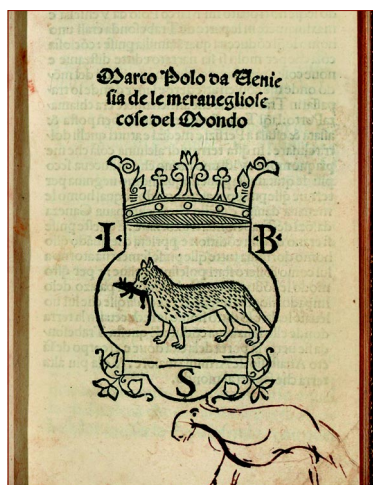 Marco Polo da Venie
sia de le meravegliose
cose del Mondo
I B
S